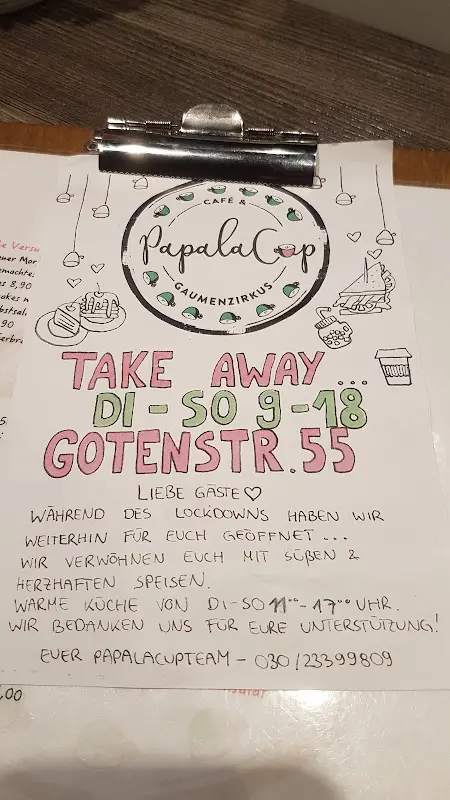 CAFÉ &
PapalaCup
GAUMENZIRKUS
TAKE AWAY...
DI - SO 9-18
GOTENSTR. 55
LIEBE GÄSTE♡
WÄHREND DES LOCKDOWNS HABEN WIR
WEITERHIN FÜR EUCH GEÖFFNET...
WIR VERWÖHNEN EUCH MIT SÜßEN &
HERZHAFTEN SPEISEN.
WARME KÜCHE VON DI-SO 11⁰⁰-17⁰⁰ UHR.
WIR BEDANKEN UNS FÜR EURE UNTERSTÜTZUNG!
EUER PAPALACUPTEAM - 030/23399809
8,90